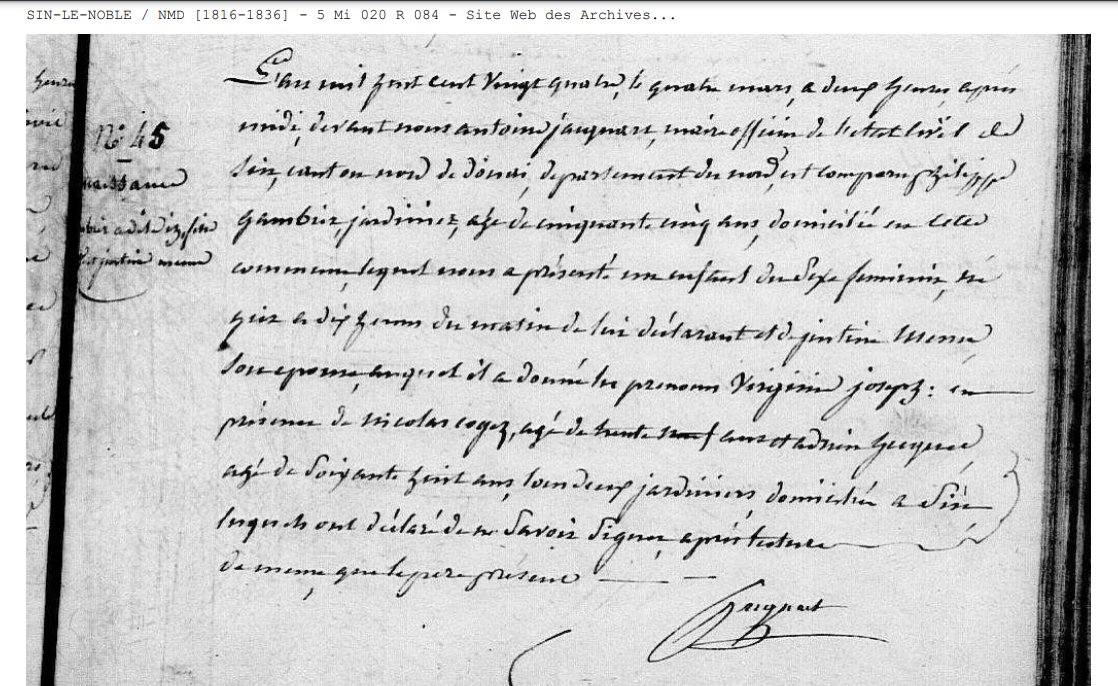 SIN-LE-NOBLE / NMD [1816-1836] - 5 Mi 020 R 084 - Site Web des Archives...
L'an mil huit cent vingt quatre, le quatre mars, a deux heures apres
midi, devant nous antoine jacquart, maire officier de l'etat civil de
Sin, canton nord de douai, departement du nord, est comparu philippe
gambiez, jardinier, agé de cinquante cinq ans, domicilié en cette
commune, lequel nous a présenté un enfant du Sexe feminin, né
hier a dix heures du matin de lui déclarant et de justine
Son epouse, auquel il a donné les prenoms Virginie joseph : en
présence de nicolas cogez, agé de trente neuf ans et adrien
agé de Soixante huit ans, tous deux jardiniers domiciliés a Sin
lesquels ont déclaré de ne Savoir Signer, après lecture
de meme que le pere présent
Jacquart
N° 45
naissance